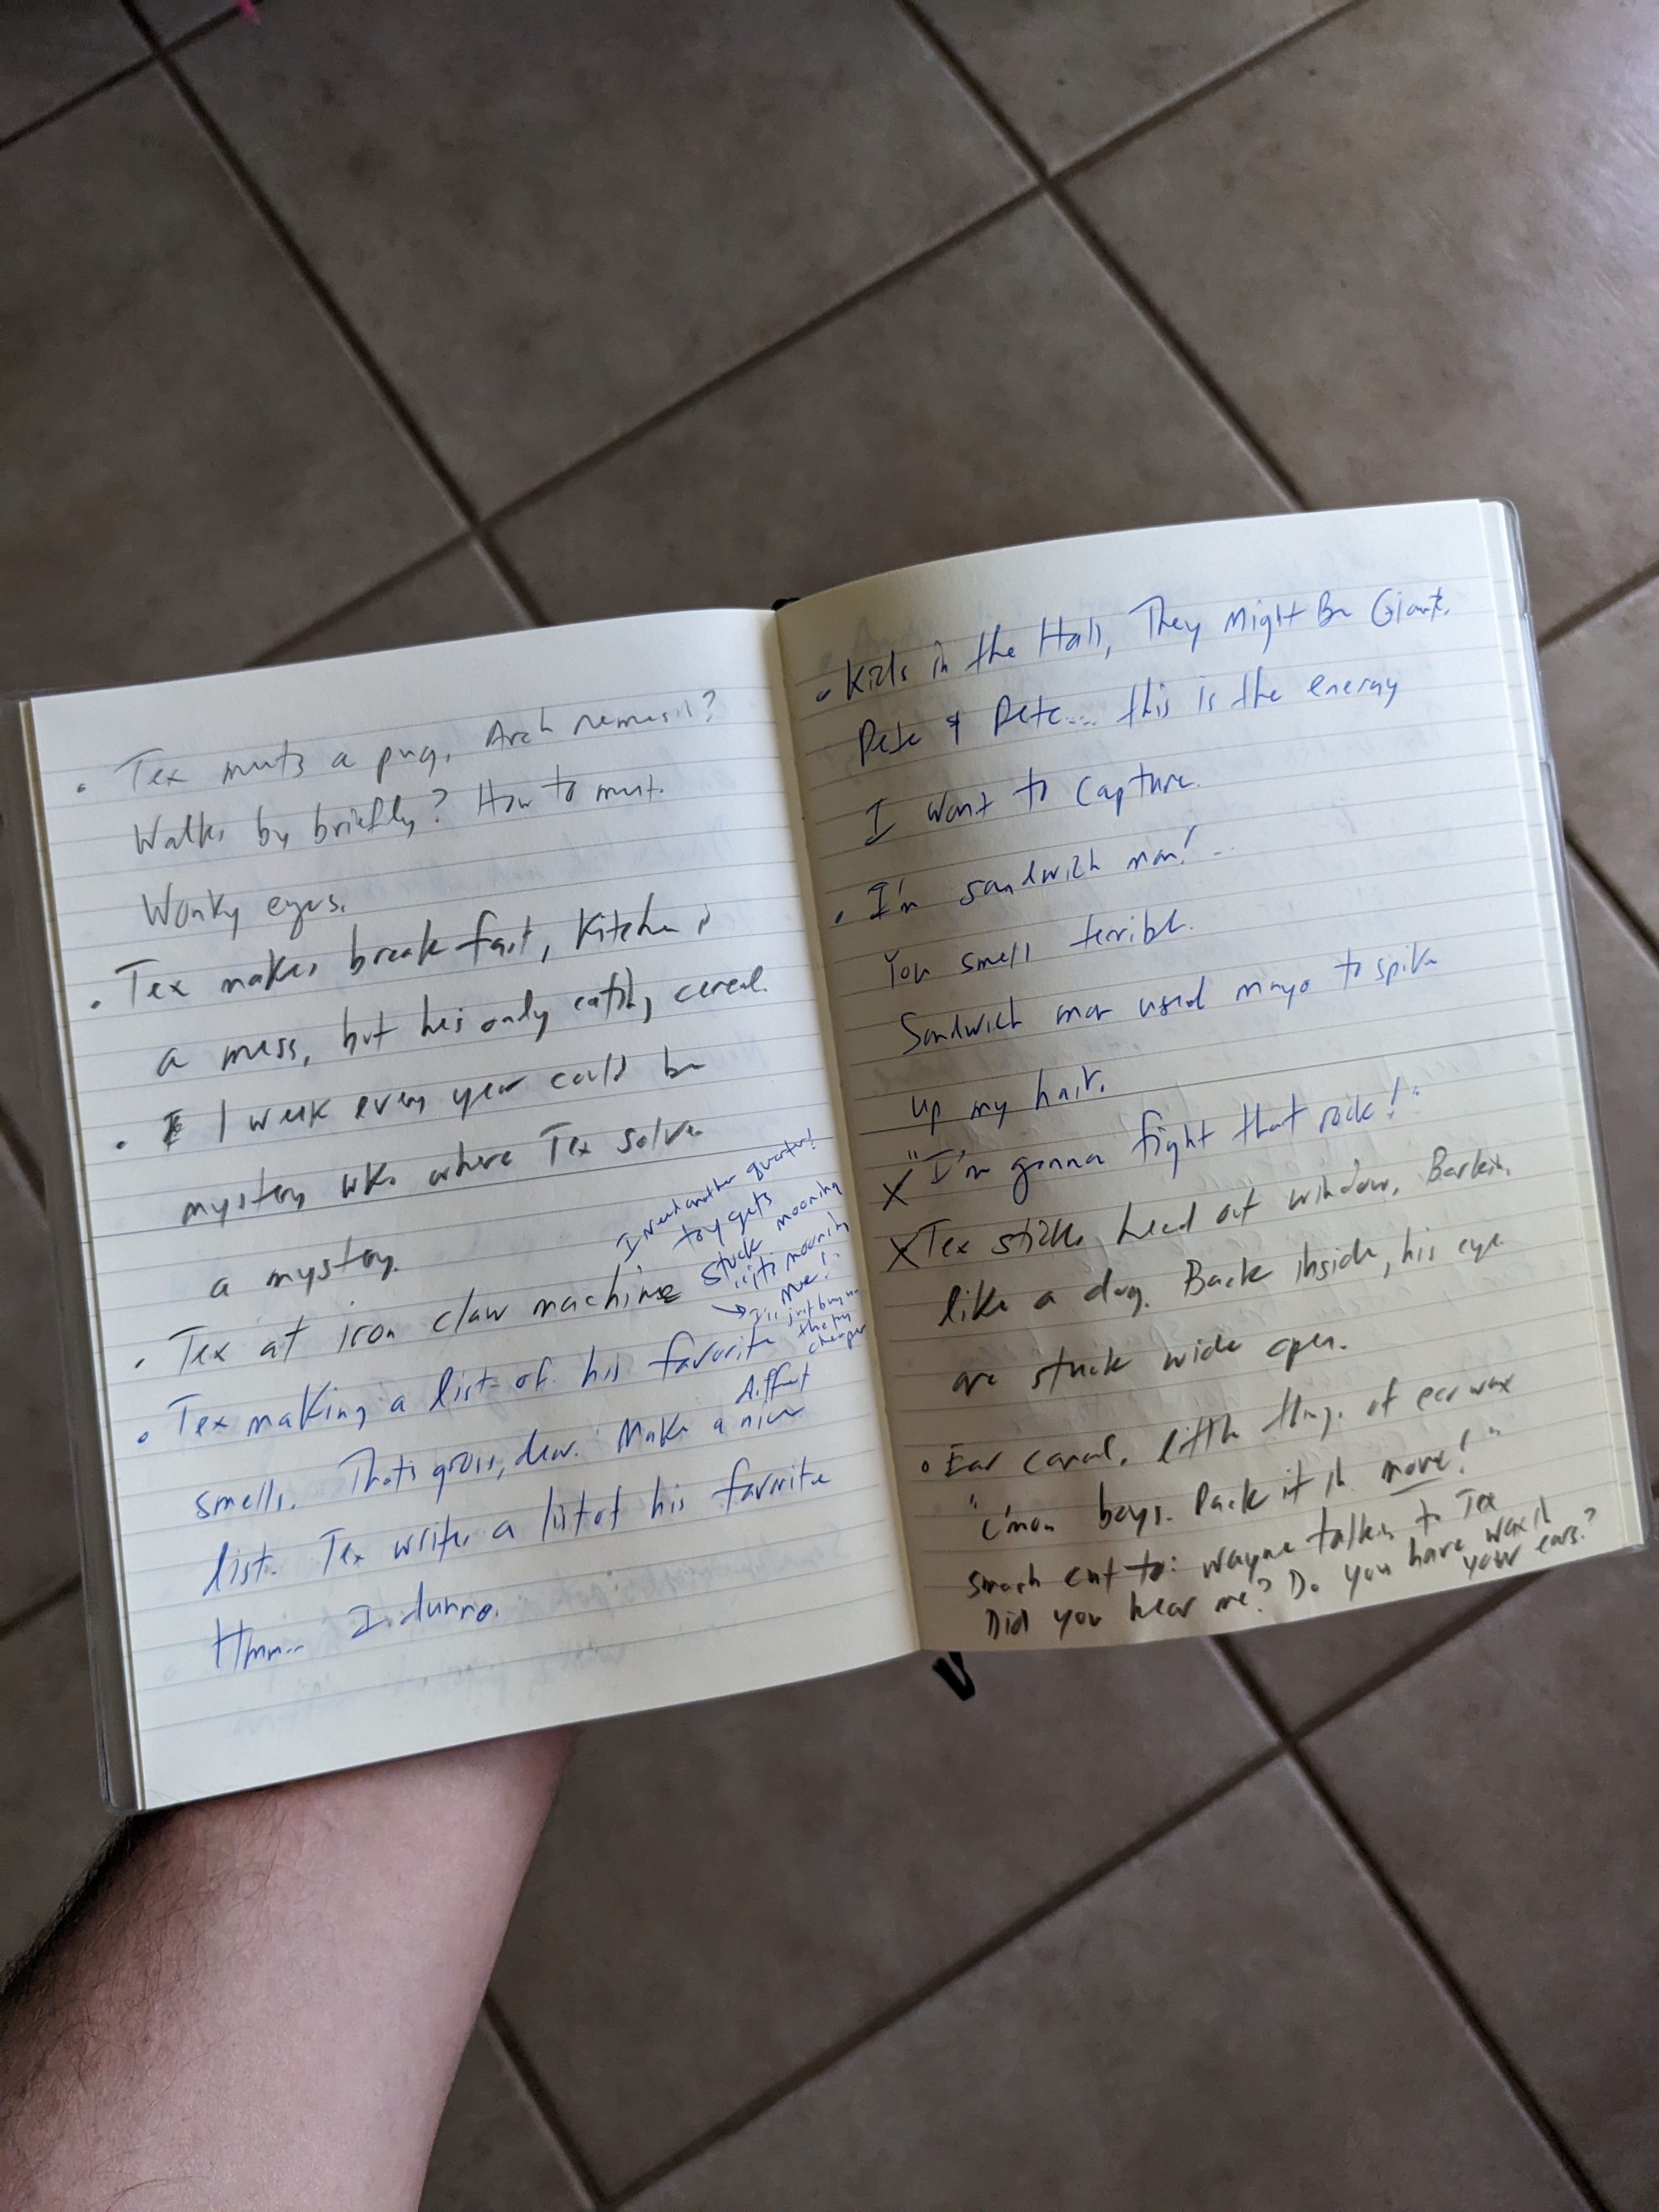 • Tex meets a pug. Arch nemesis?
Walks by briefly? How to meet.
Wonky eyes.
• Tex makes breakfast, kitchen is
a mess, but he's only eating cereal.
• 1 week every year could be
mystery wk. where Tex solves
a mystery.
• Tex at iron claw machine
I need another quarter!
toy gets
stuck mooning
"it's mooning
me!"
→ I'll just buy
the toy
cheaper
• Tex making a list of his favorite
smells. That's gross, dew. Make a nice
different
list. Tex writes a list of his favorite
Hmm... I dunno.
• Kids in the Hall, They Might Be Giants.
Pete & Pete.... this is the energy
I want to capture.
• I'm sandwich man!..
You smell terrible.
Sandwich man used mayo to spike
up my hair.
X "I'm gonna fight that rock!"
X Tex sticks head out window. Barking
like a dog. Back inside, his eyes
are stuck wide open.
• Ear canal. little things of ear wax
"C'mon boys. Pack it in more!"
smash cut to: Wayne talking to Tex
Did you hear me? Do you have wax in
your ears?